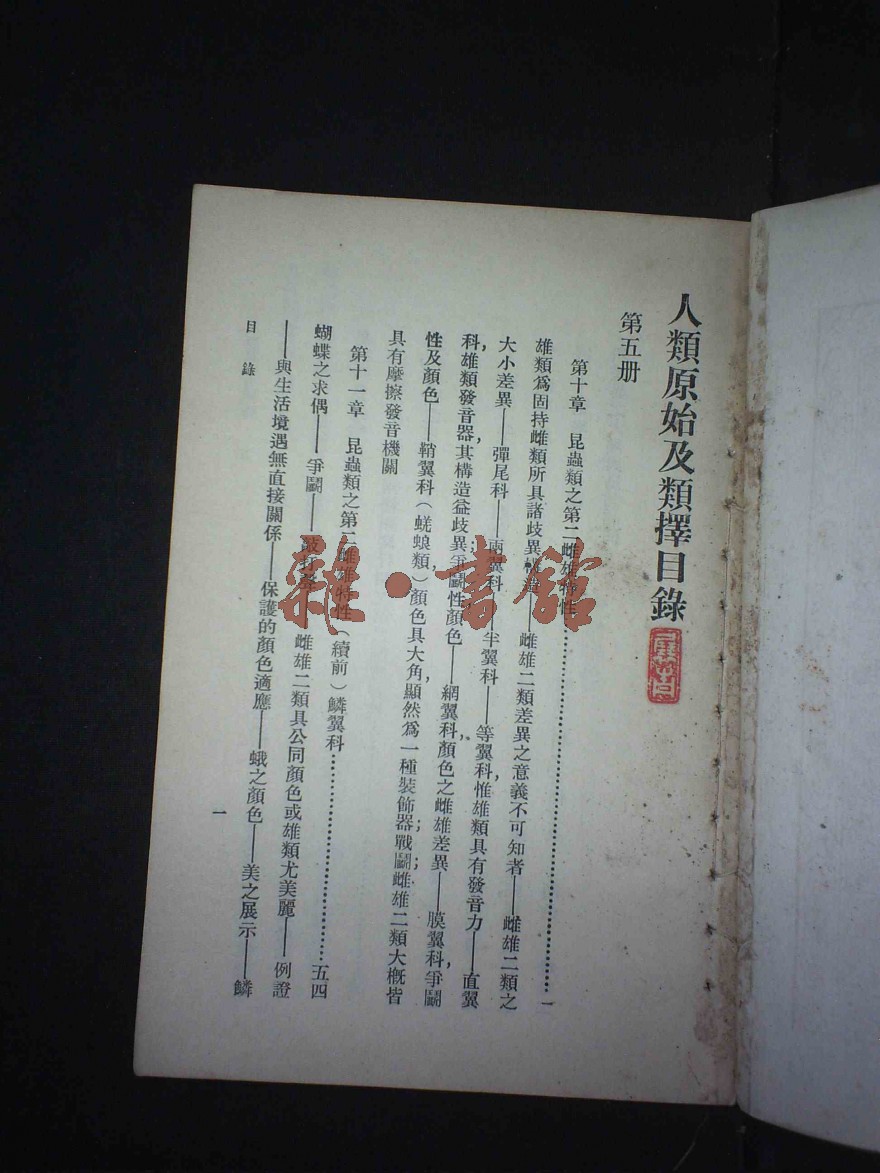 人類原始及類擇目錄
第五册
第十章 昆蟲類之第二雌雄特性……一
雄類爲固持雌類所具諸歧異構造——雌雄二類差異之意義不可知者——雌雄二類之
大小差異——彈尾科——兩翼科——半翼科——等翼科,惟雄類具有發音力——直翼
科,雄類發音器,其構造益歧異;爭鬭性,顏色——網翼科,顏色之雌雄差異——膜翼科,爭鬭
性及顏色——鞘翼科(蜣蜋類)顏色具大角,顯然爲一種裝飾器;戰鬭;雌雄二類大槪皆
具有摩擦發音機關
第十一章 昆蟲類之第二雌雄特性(續前)鱗翼科……五四
蝴蝶之求偶——爭鬭——敲打聲 雌雄二類具公同顏色或雄類尤美麗——例證
——與生活境遇無直接關係——保護的顏色適應——蛾之顏色——美之展示——鱗
目錄
一
雜·書館